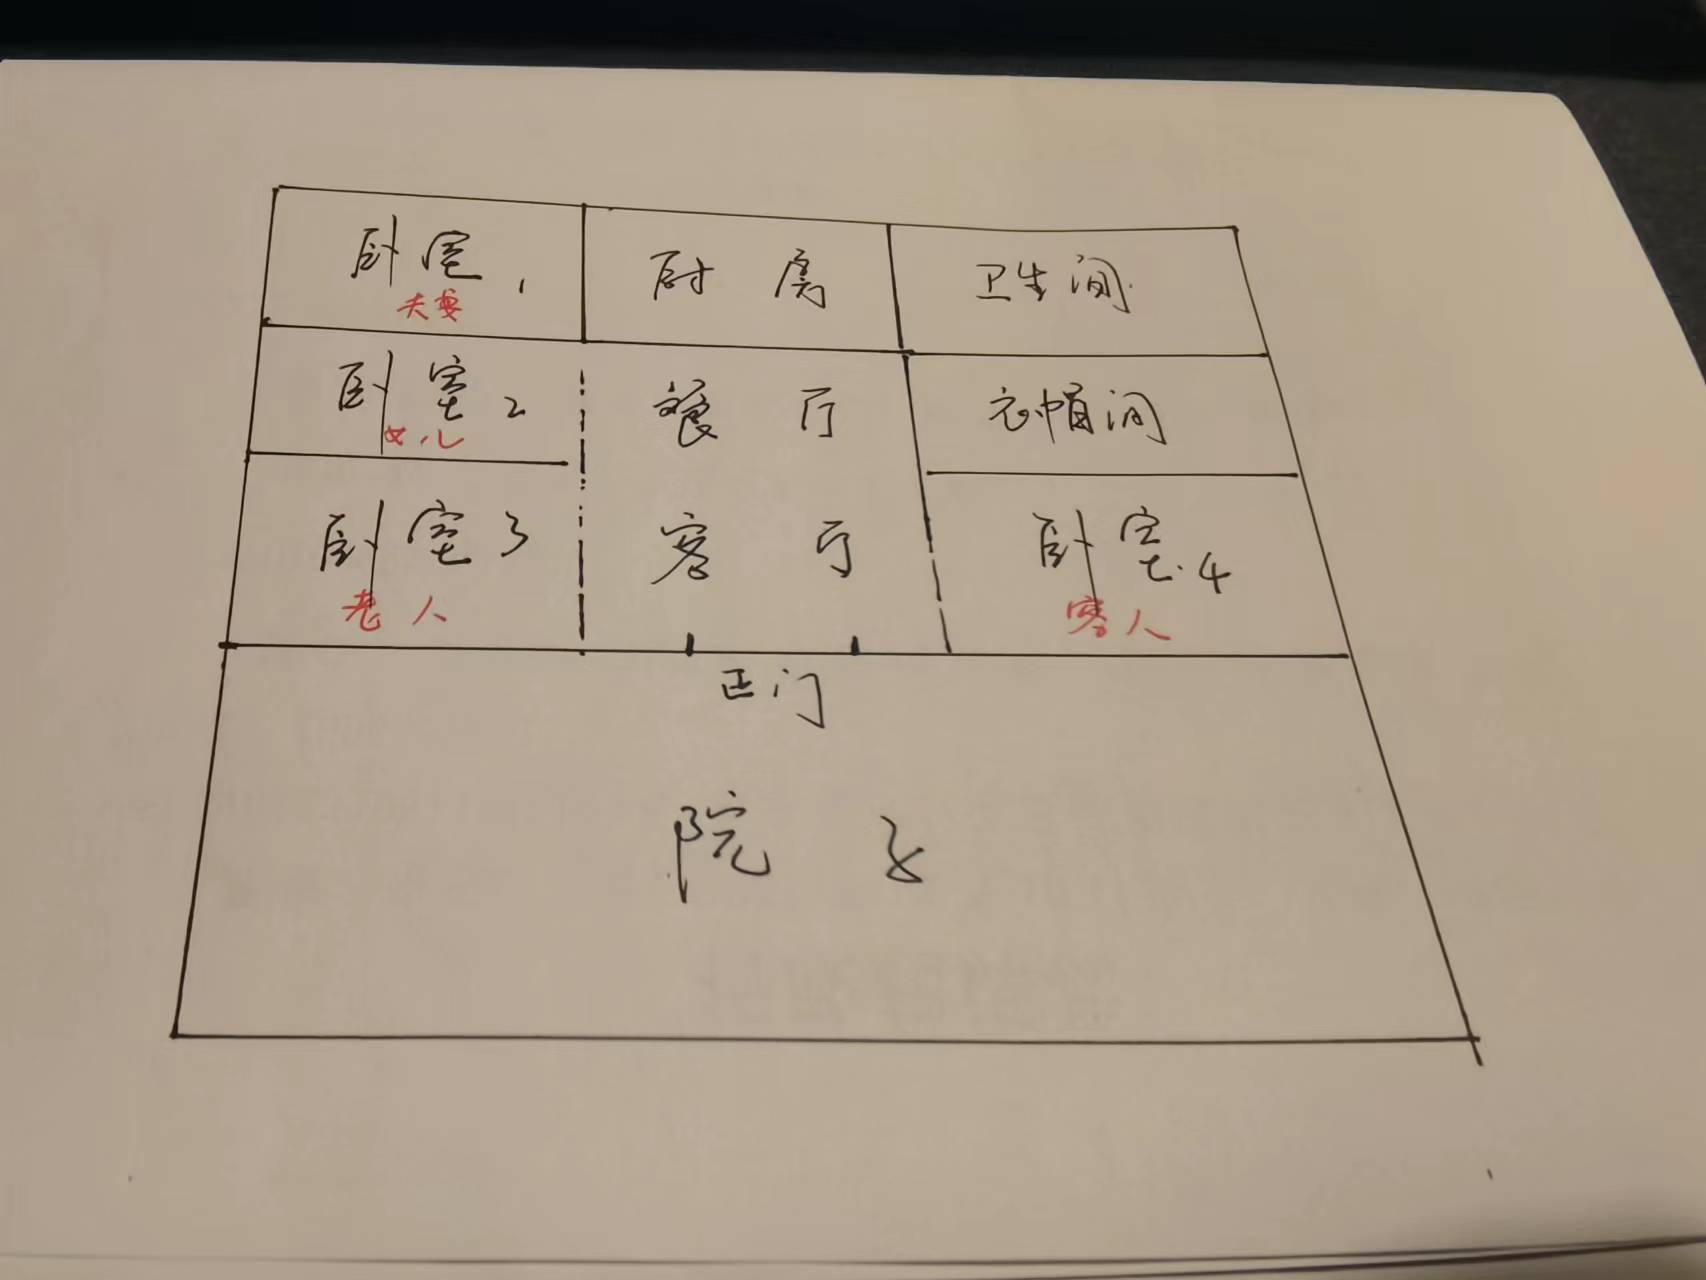 卧室1 厨房 卫生间
夫妻
卧室2 餐厅 衣帽间
女儿
卧室3 客厅 卧室.4
老人 客人
正门
院子